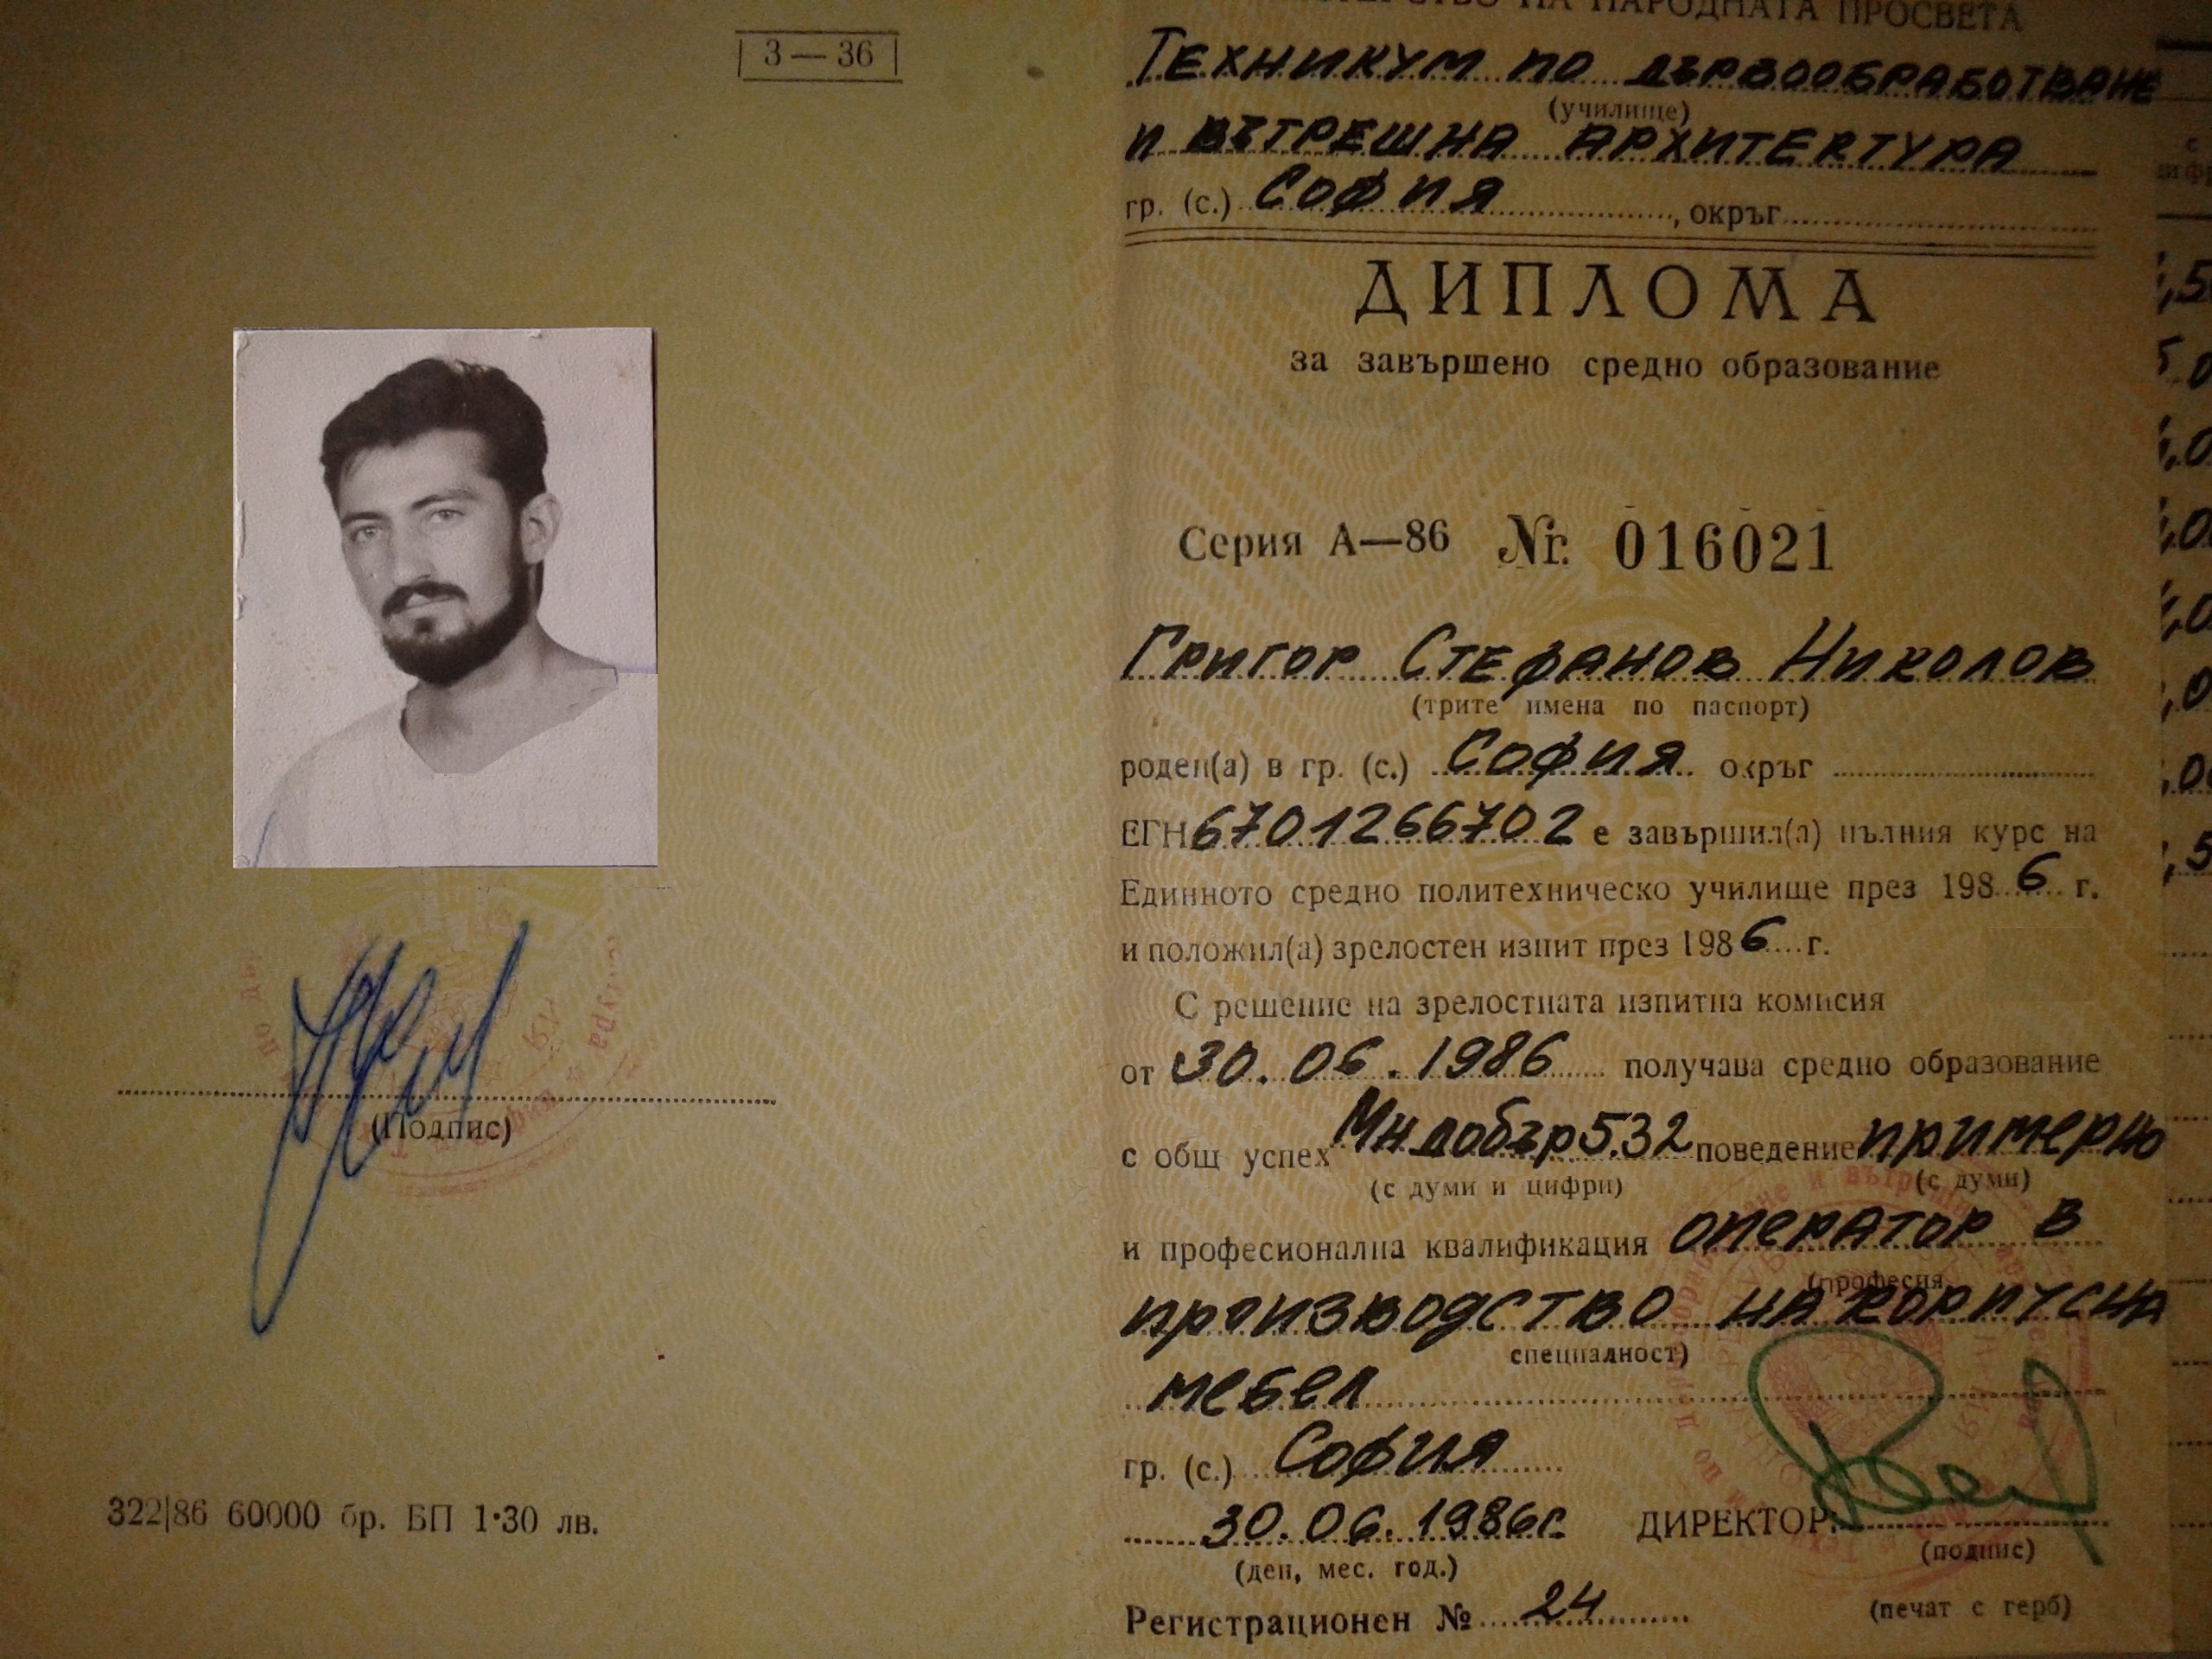 3 — 36
(Подпис)
322|86 60000 бр. БП 1·30 лв.
НА НАРОДНАТА ПРОСВЕТА
ТЕХНИКУМ ПО ДЪРВООБРАБОТВАНЕ
(училище)
И ВЪТРЕШНА АРХИТЕКТУРА
гр. (с.) СОФИЯ, окръг
ДИПЛОМА
за завършено средно образование
Серия А—86 Nr. 016021
ГРИГОР СТЕФАНОВ НИКОЛОВ
(трите имена по паспорт)
роден(а) в гр. (с.) СОФИЯ окръг
ЕГН 6701266702 е завършил(а) пълния курс на
Единното средно политехническо училище през 1986 г.
и положил(а) зрелостен изпит през 1986 г.
С решение на зрелостната изпитна комисия
от 30.06.1986 получава средно образование
с общ успех Мн добър 5.32 поведение примерно
(с думи и цифри) (с думи)
и професионална квалификация ОПЕРАТОР В
(професия,
ПРОИЗВОДСТВО НА КОРПУСНА
специалност)
МЕБЕЛ
гр. (с.) СОФИЯ
30.06.1986г. ДИРЕКТОР:
(ден, мес. год.) (подпис)
Регистрационен № 24 (печат с герб)